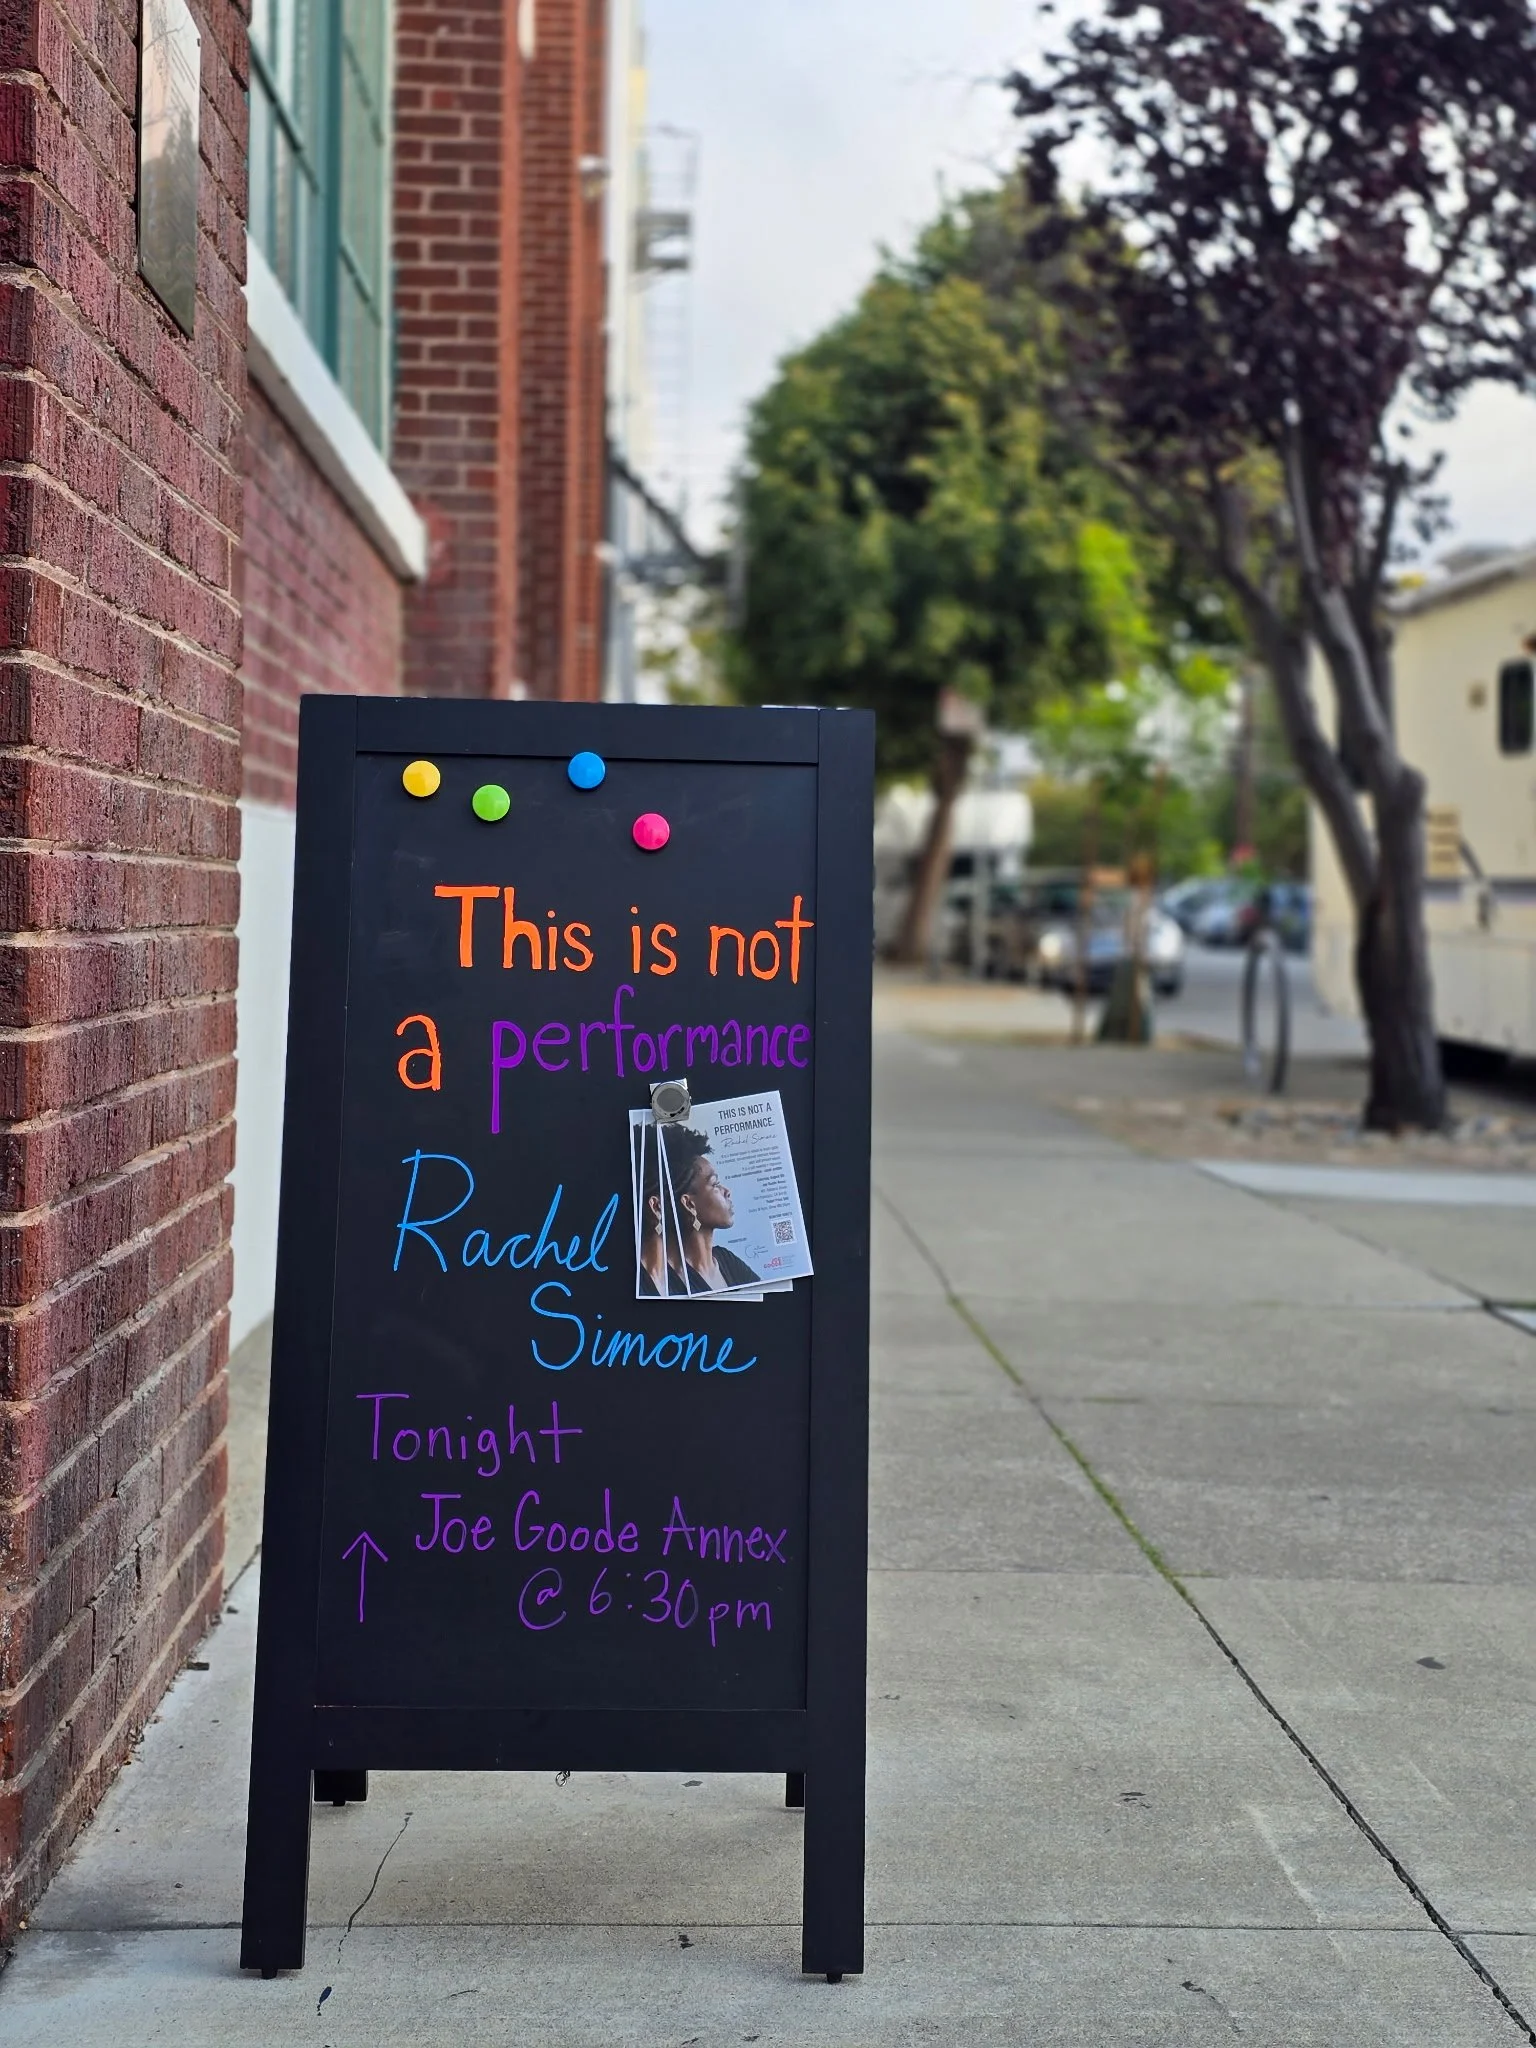 This is not
a performance
Rachel
Simone
Tonight
Joe Goode Annex
@ 6:30pm
THIS IS NOT A
PERFORMANCE.
Rachel Simone